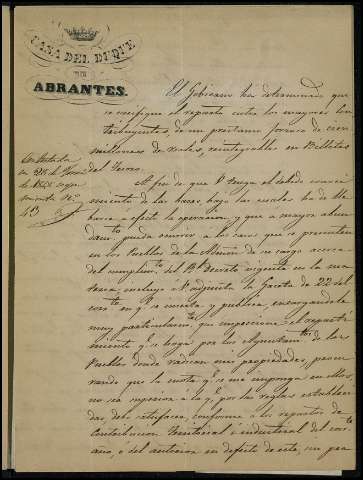 CASA DEL DUQUE
DE
ABRANTES.
El Gobierno ha determinado que
se verifique el reparto entre los mayores con-
tribuyentes, de un prestamo forzoso de cien
millones de reales, reintegrables en Billetes
del Tesoro.
Contestada
en 28 de
de
minuta nº
43
A fin de que V. tenga el debido conoci-
miento de las bases, bajo las cuales ha de lle-
barse a efecto la operacion, y que a mayor abun-
damto pueda ocurrir a los casos que se presenten
en los Pueblos de la Admon de su cargo acerca
del cumplimto del Rl Decreto vigente en la ma-
teria, incluyo a V. adjunta la Gaceta de 22 del
corrte en q. se inserta y publica, encargandole
muy particularmte que inspeccione el reparti-
miento q. se haga por los Ayuntamtos de los
Pueblos donde radican mis propiedades, procu-
rando que la cuota q. se me imponga en ellos,
no sea superior a la q. por las reglas estableci-
das, deba satisfacer, conforme a los repartos de
contribucion Territorial e industrial del corrte
año, o del anterior en defecto de este, sin per